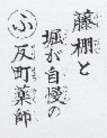 藤棚と
堀が自慢の
㋫反町薬師